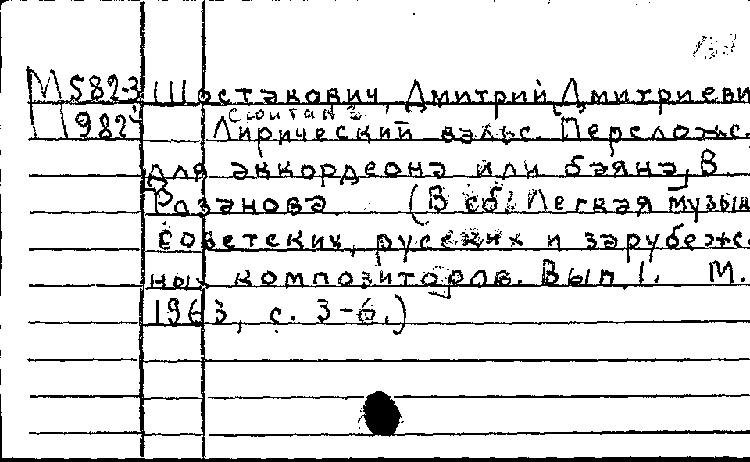 М 582-3 Шостакович, Дмитрий Дмитриеви
982 Лирический вальс. Перелож.
для аккордеона или баяна, В.
Розанова (В сб. Легкая музык
советских, русских и зарубеж-
ных композиторов. Вып. 1. М.
1963, с. 3-6.)